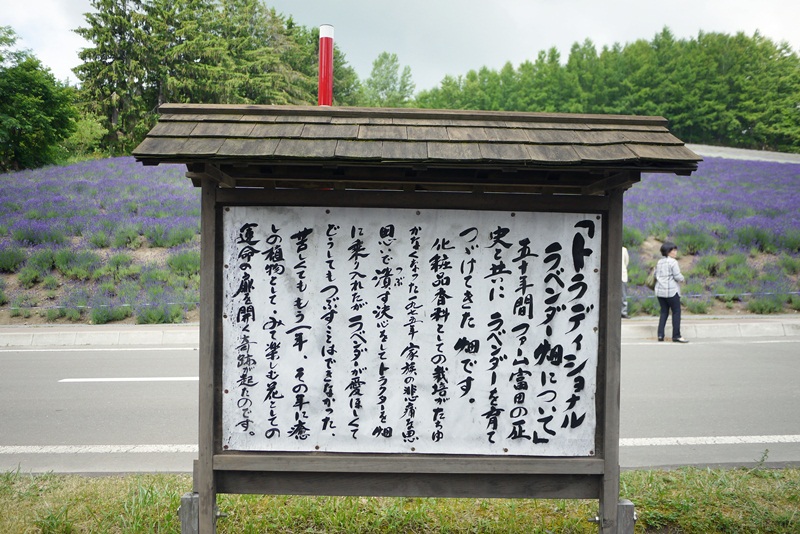 「トラディショナル
ラベンダー畑について」
五十年間 ファーム富田の歴
史と共に ラベンダーを育て
つづけてきた 畑です。
化粧品香料としての栽培がたちゆ
かなくなった一九七五年 家族の悲痛な思
思いで潰す決心をして トラクターを 畑
つぶ
に乗り入れたが ラベンダーが愛ほしくて
どうしてもつぶすことはできなかった、
苦しくても もう一年、その年に癒
しの植物として、みて楽しむ花としての
運命の扉を開く奇跡が起たのです。